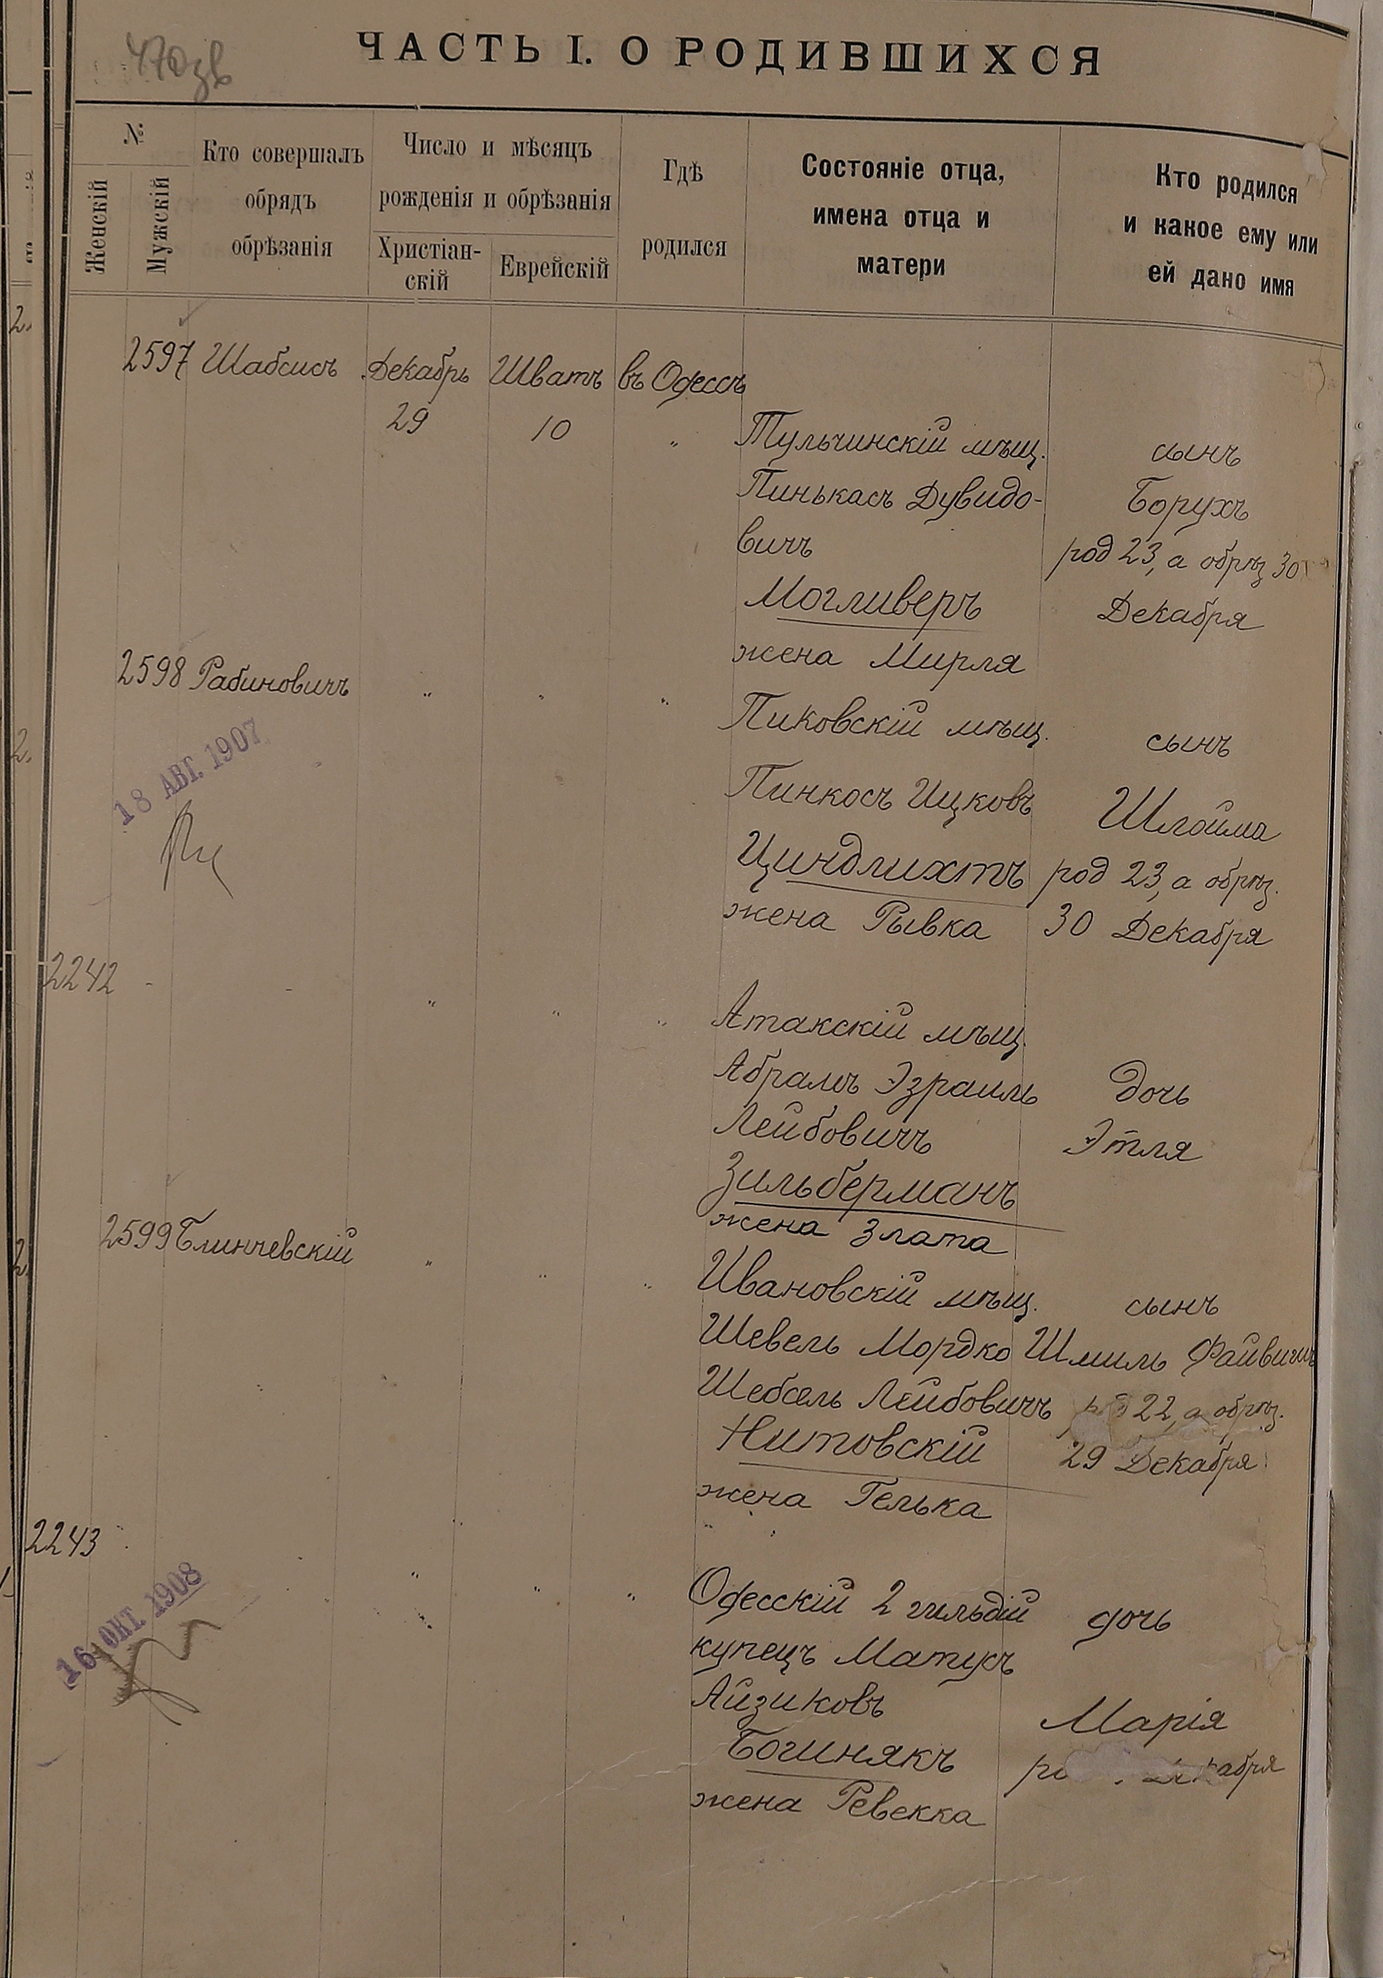 470зв
ЧАСТЬ I. О РОДИВШИХСЯ
№
Женскій
Мужскій
Кто совершалъ
обрядъ
обрѣзанія
Число и мѣсяцъ
рожденія и обрѣзанія
Христіан-
скій
Еврейскій
Гдѣ
родился
Состояніе отца,
имена отца и
матери
Кто родился
и какое ему или
ей дано имя
2597 Шабсисъ Декабрь Шватъ въ Одессѣ
29 10 " Тульчинскій мѣщ. сынъ
Пинькасъ Дувидо- Борухъ
вичъ род 23, а обрѣз 30
Могливеръ Декабря
жена Мирля
2598 Рабиновичъ " " "
Пиковскій мѣщ. сынъ
18 АВГ. 1907
Пинкосъ Ицковъ Шлойма
Циндлихтъ род 23, а обрѣз.
жена Рывка 30 Декабря
2242 - - " " "
Атакскій мѣщ.
Абрамъ Эзраиль дочь
Лейбовичъ Этля
Зильберманъ
жена Злата
2599 Блинчевскій " " "
Ивановскій мѣщ. сынъ
Шевель Мордко Шмиль Файвишъ
Шебсель Лейбовичъ 22, а обрѣз.
Нитовскій 29 Декабря
жена Гелька
2243
16 ОКТ. 1908
" " " Одесскій 2 гильдій дочь
купецъ Матусъ
Айзиковъ Марія
Богинякъ
жена Ревекка